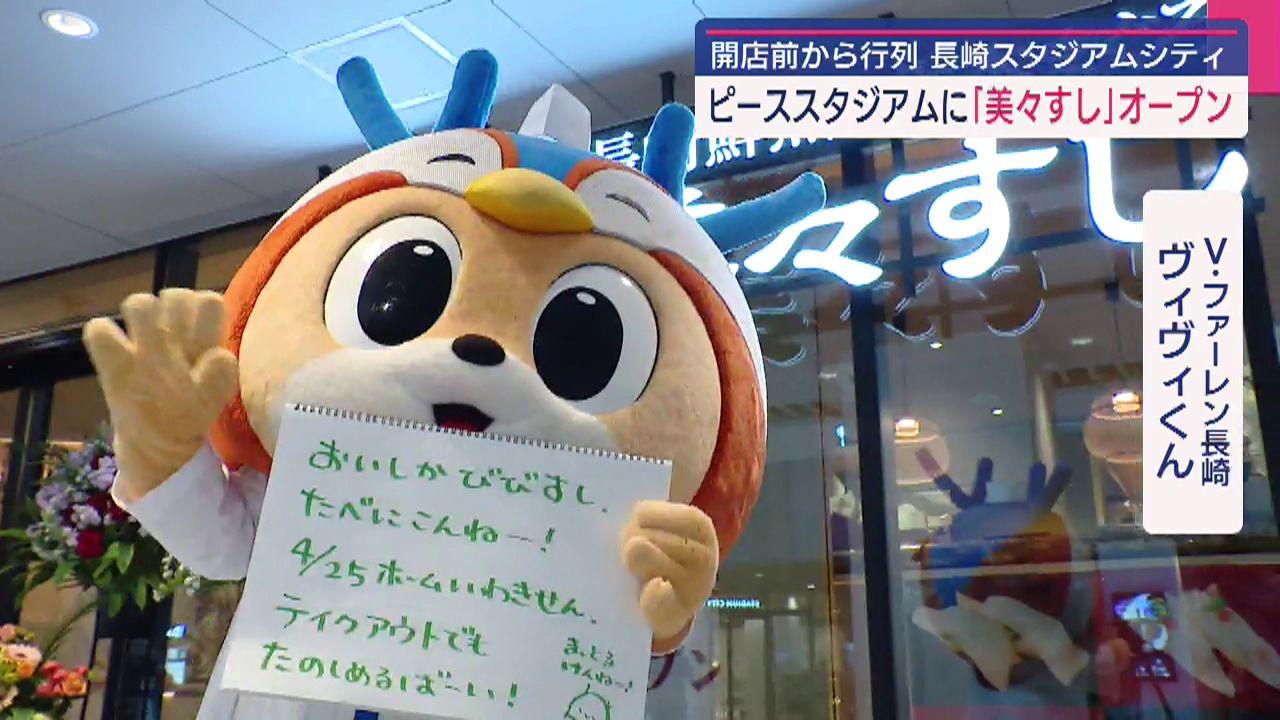 開店前から行列 長崎スタジアムシティ
ピーススタジアムに「美々すし」オープン
々すし
V・ファーレン長崎
ヴィヴィくん
おいしかびびすし、
たべにこんねー!
4/25ホームいわきせん、
テイクアウトでも
たのしめるばーい!
まっとる
けんねー!
STADIUM CITY